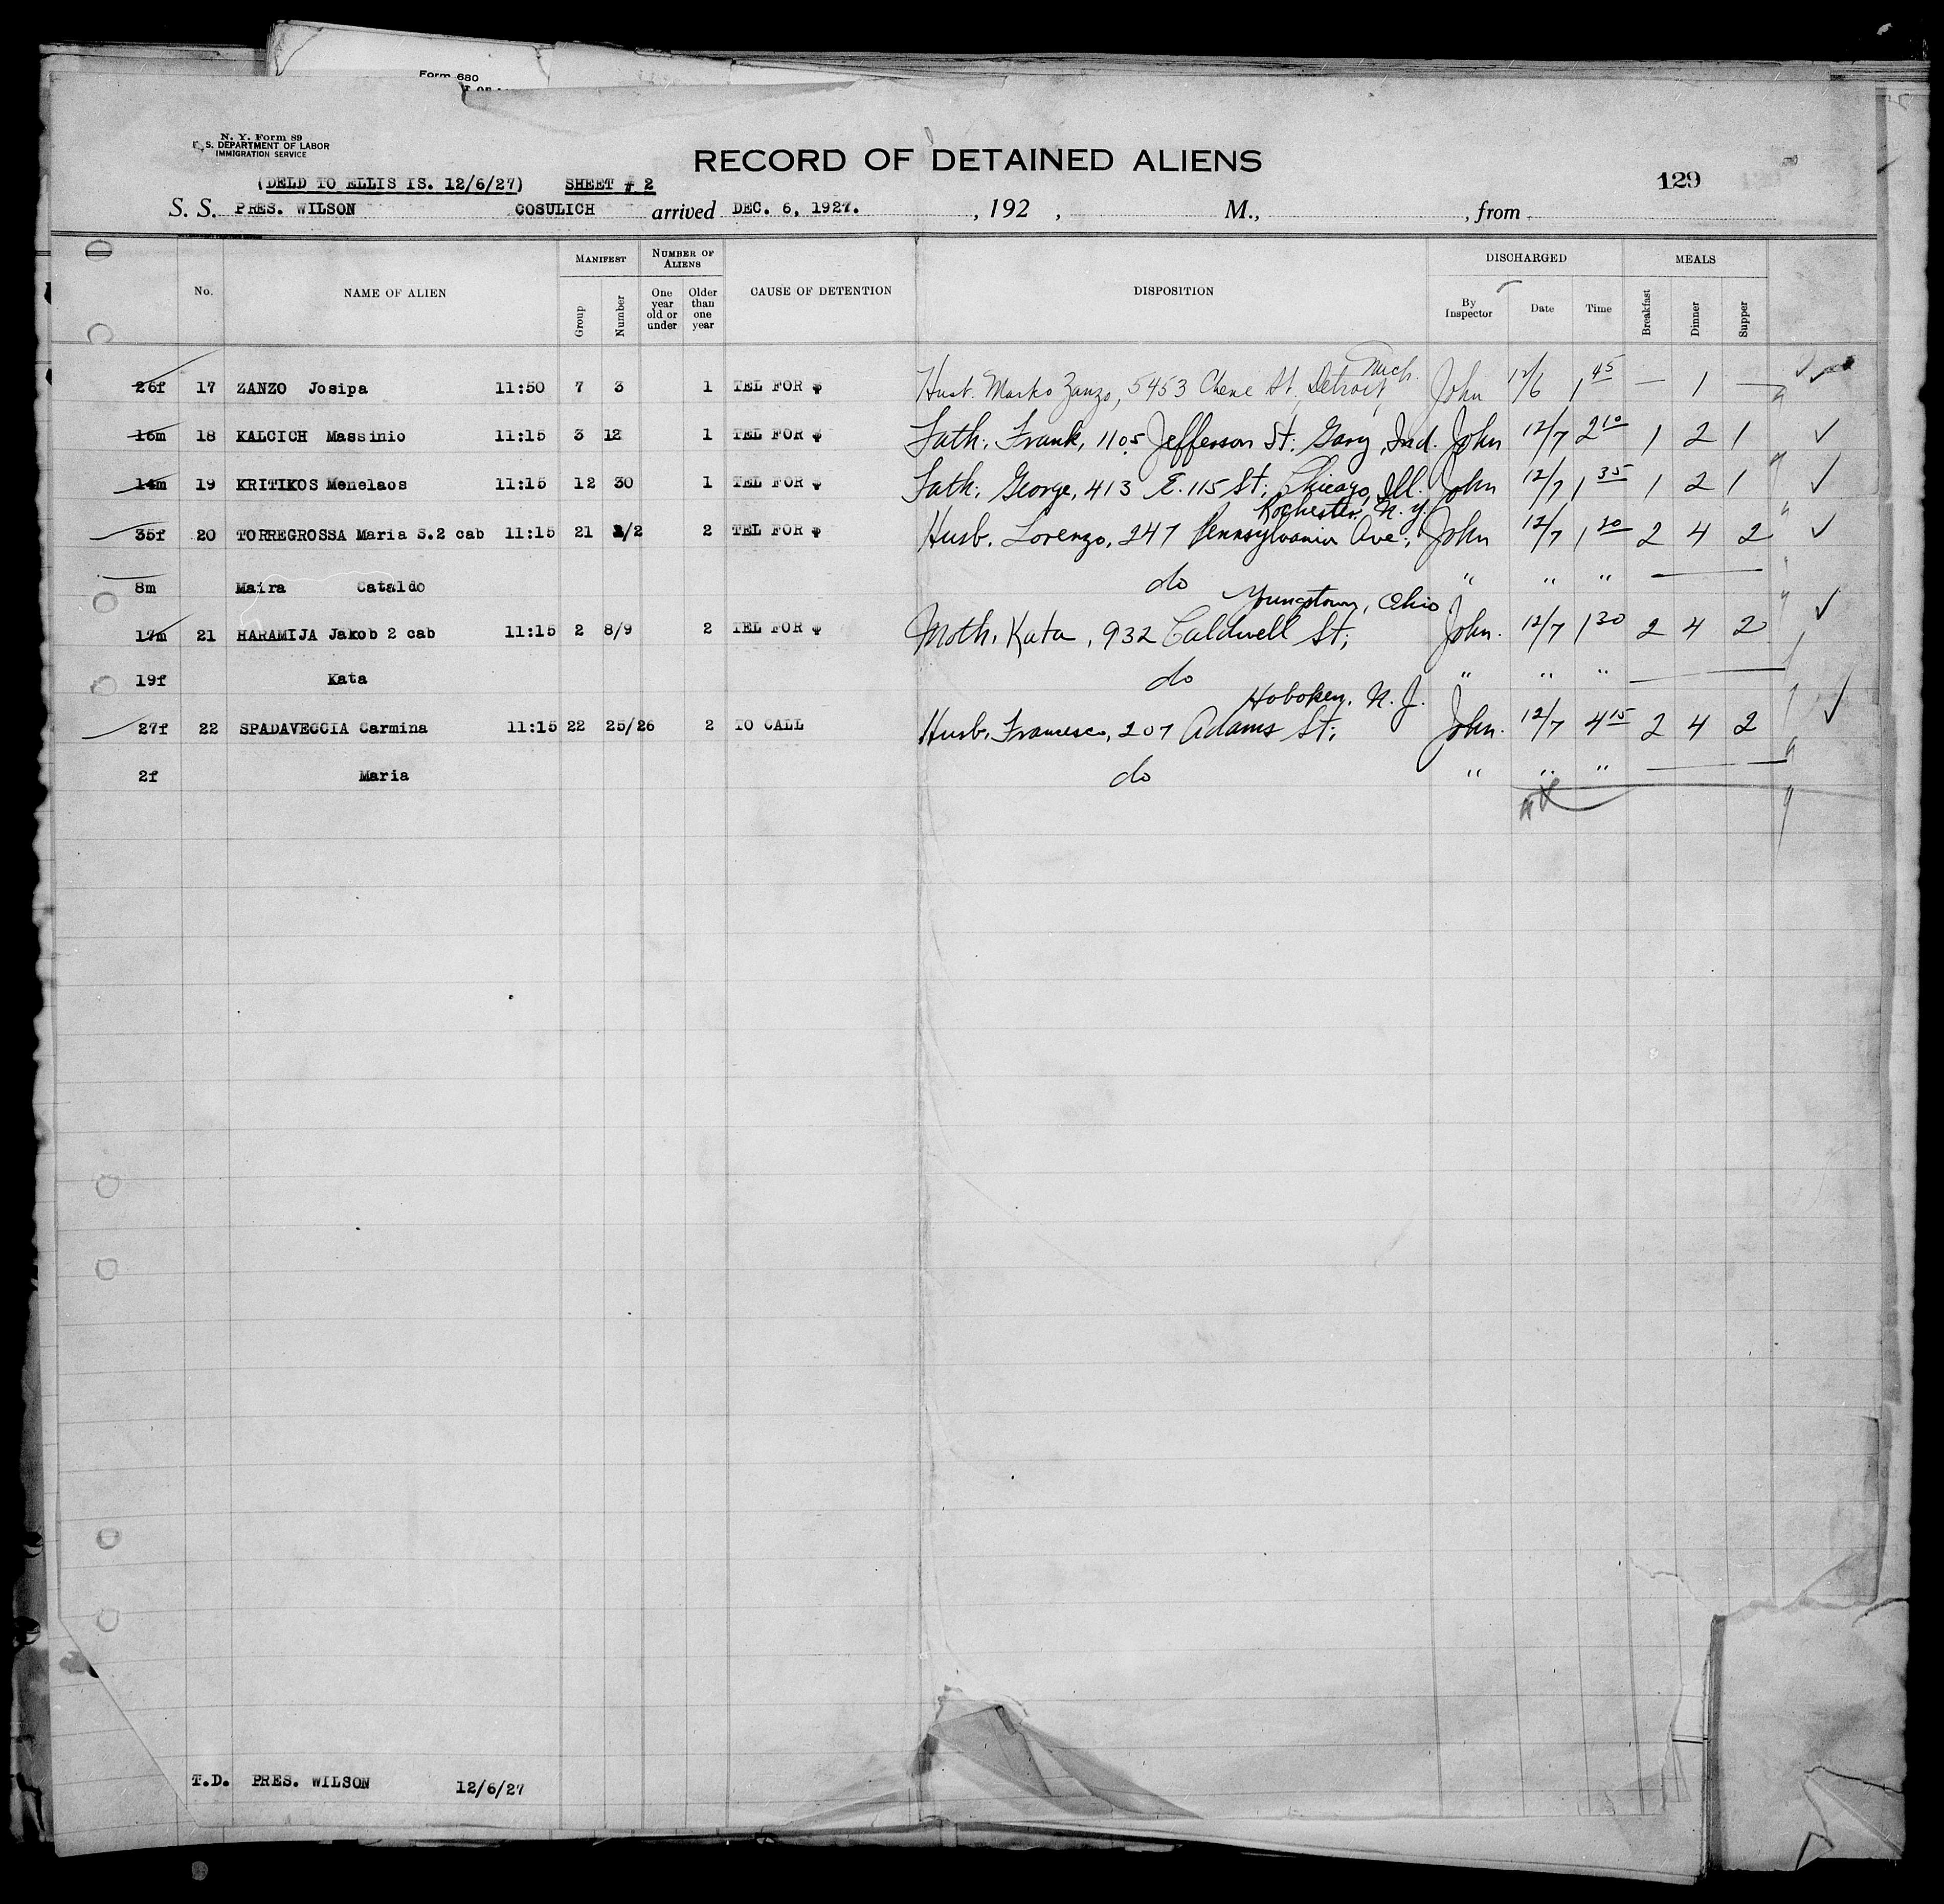 Form 680
N. Y. Form 89
U. S. DEPARTMENT OF LABOR
IMMIGRATION SERVICE
RECORD OF DETAINED ALIENS
129
(DELD TO ELLIS IS. 12/6/27) SHEET # 2
S. S. PRES. WILSON COSULICH arrived DEC. 6, 1927. , 192 , M., , from
No. NAME OF ALIEN MANIFEST Group Number NUMBER OF ALIENS One year old or under Older than one year CAUSE OF DETENTION DISPOSITION DISCHARGED By Inspector Date Time MEALS Breakfast Dinner Supper
26f 17 ZANZO Josipa 11:50 7 3 1 TEL FOR $ Husb. Marko Zanzo, 5453 Chene St. Detroit, Mich. John 12/6 1 45 — 1 —
16m 18 KALCICH Massinio 11:15 3 12 1 TEL FOR $ Fath: Frank, 1105 Jefferson St: Gary, Ind. John 12/7 2 10 1 2 1
14m 19 KRITIKOS Menelaos 11:15 12 30 1 TEL FOR $ Fath: George, 413 E. 115 St; Chicago, Ill. John 12/7 1 35 1 2 1
35f 20 TORREGROSSA Maria S.2 cab 11:15 21 1/2 2 TEL FOR $ Husb. Lorenzo, 247 Pennsylvania Ave; Rochester, N.Y. John 12/7 1 20 2 4 2
8m Maira Cataldo do " " "
17m 21 HARAMIJA Jakob 2 cab 11:15 2 8/9 2 TEL FOR $ Moth. Kata, 932 Caldwell St; Youngstown, Ohio John. 12/7 1 30 2 4 2
19f Kata do " " "
27f 22 SPADAVECCIA Carmina 11:15 22 25/26 2 TO CALL Husb. Francesco, 207 Adams St; Hoboken, N.J. John. 12/7 4 15 2 4 2
2f Maria do " " "
T.D. PRES. WILSON 12/6/27